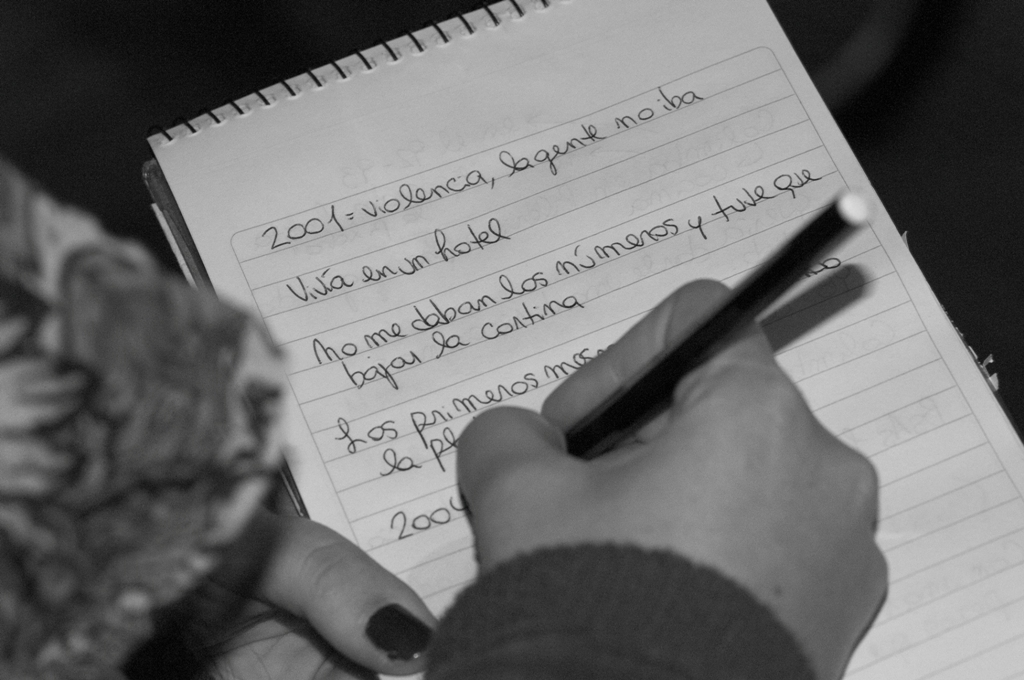 2001= violencia, la gente no iba
Vivía en un hotel
No me daban los números y tuve que
bajar la cortina
Los primeros
la
200